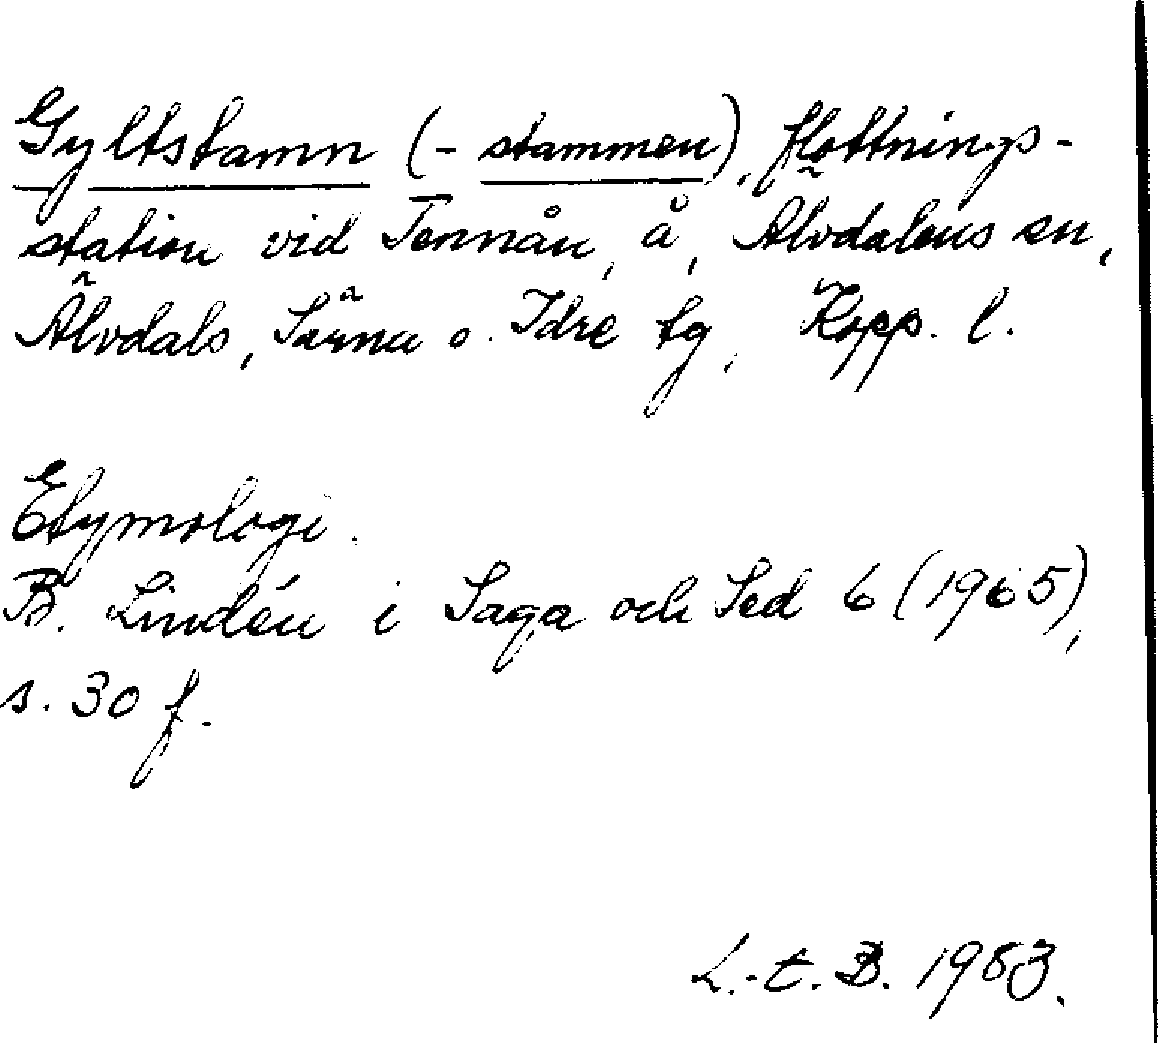 Gyltstamn (-stammen), flottnings-
station vid Tennån, å, Älvdalens sn,
Älvdals, Särna o. Idre tg, Kopp. l.
Etymologi.
B. Lindén i Saga och Sed 6 (1965),
s. 30 f.
L.-E. B. 1983.